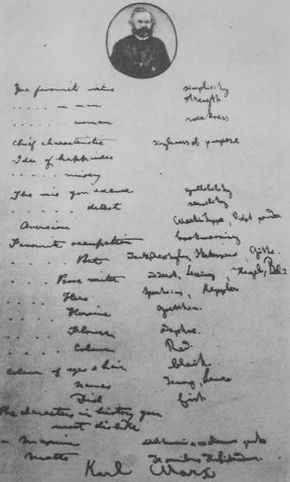 Your favourite virtue simplicity
. . . . . . in man strength
. . . . . . woman weakness
Chief characteristic singleness of purpose
Idea of happiness
. . . . . misery
The vice you excuse gullibility
. . . . . detest servility
Aversion Martin Tupper,
Favourite occupation bookworming
. . . . . Poet
. . . . . Prose writer Diderot, Lessing, Hegel,
. . . . . Hero Spartacus, Keppler
. . . . . Heroine Gretchen.
. . . . . Flower Daphne.
. . . . . Colour Red.
Colour of eyes & hair black.
. . . . . Names Jenny, Laura
. . . . . Dish fish
The characters in history you
most dislike
. . Maxim
. . Motto De omnibus dubitandum.
Karl Marx